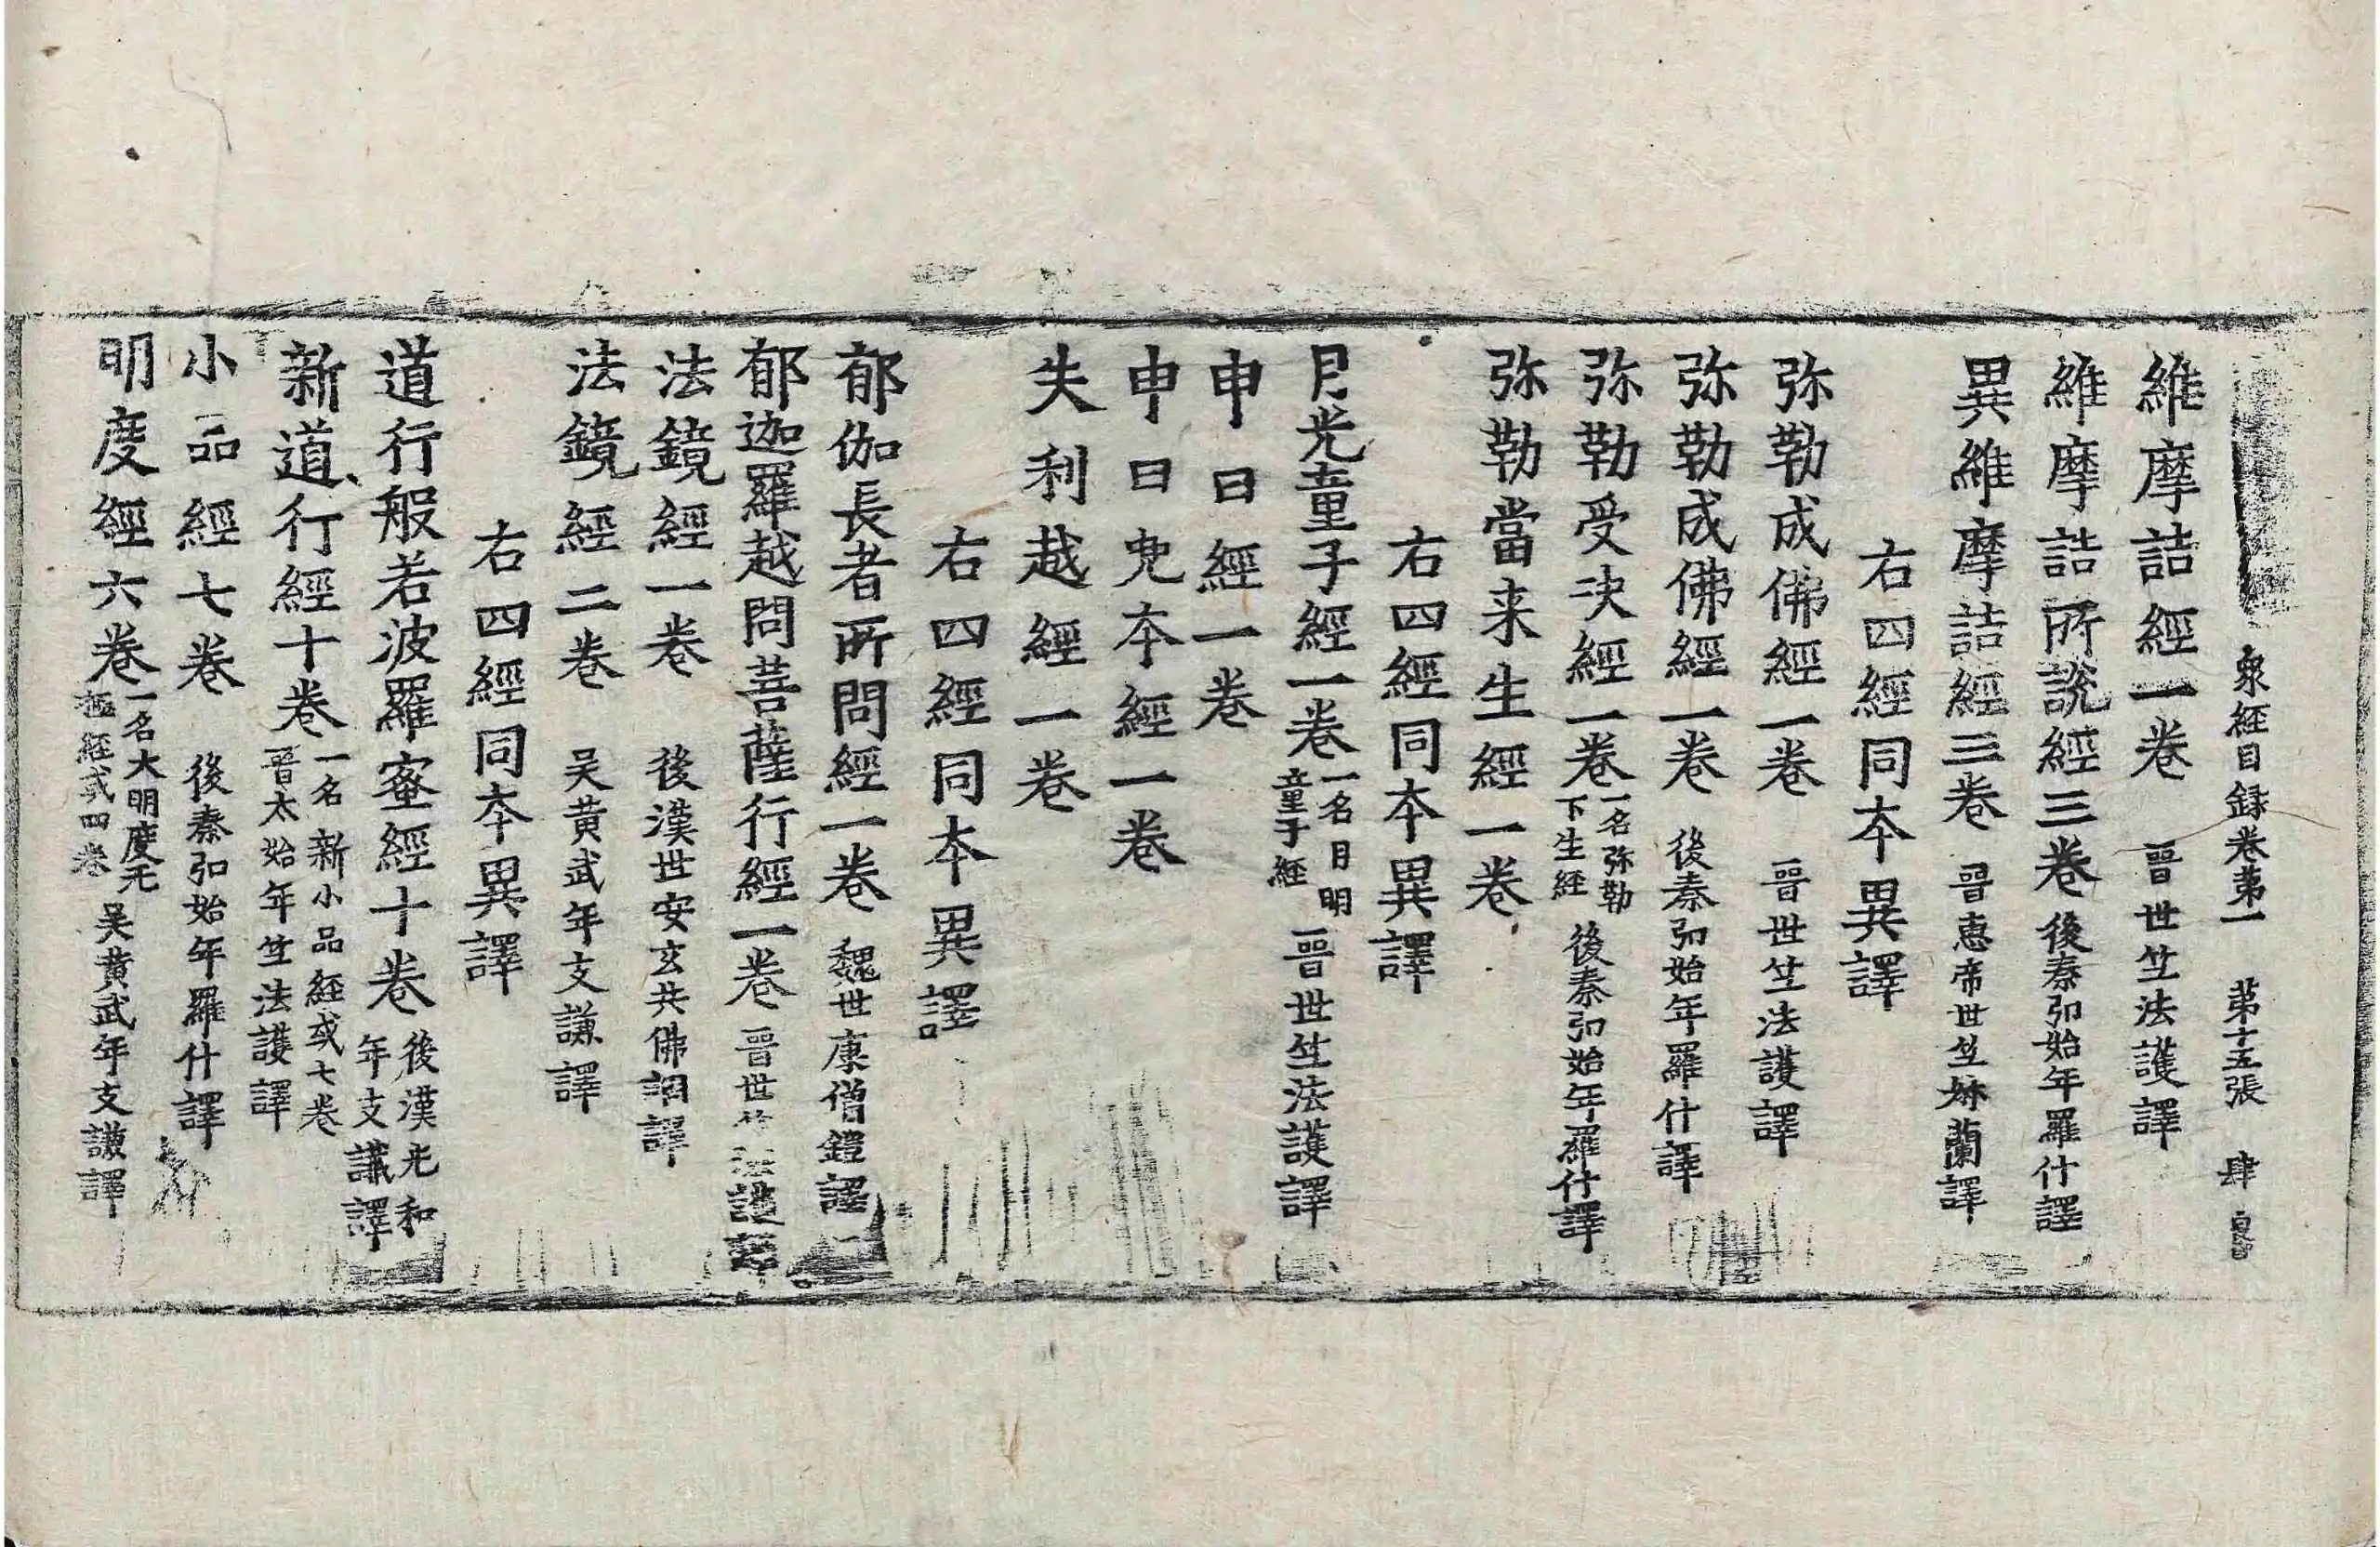 衆經目録卷苐一 苐十五張 肆
維摩詰經一卷 晉世竺法護譯
維摩詰所說經三卷 後秦弘始年羅什譯
異維摩詰經三卷 晉惠帝世竺叔蘭譯
右四經同本異譯
弥勒成佛經一卷 晉世竺法護譯
弥勒成佛經一卷 後秦弘始年羅什譯
弥勒受决經一卷 一名弥勒下生經 後秦弘始年羅什譯
弥勒當来生經一卷
右四經同本異譯
月光童子經一卷 一名月明童子經 晉世竺法護譯
申日經一卷
申日兜本經一卷
失利越經一卷
右四經同本異譯
郁伽長者所問經一卷 魏世康僧鎧譯
郁迦羅越問菩薩行經一卷 晉世竺法護譯
法鏡經一卷 後漢世安玄共佛調譯
法鏡經二卷 吴黄武年支謙譯
右四經同本異譯
道行般若波羅蜜經十卷 後漢光和年支讖譯
新道行經十卷 一名新小品經或七卷 晉太始年竺法護譯
小品經七卷 後秦弘始年羅什譯
明度經六卷 一名大明度无極經或四卷 吴黄武年支謙譯